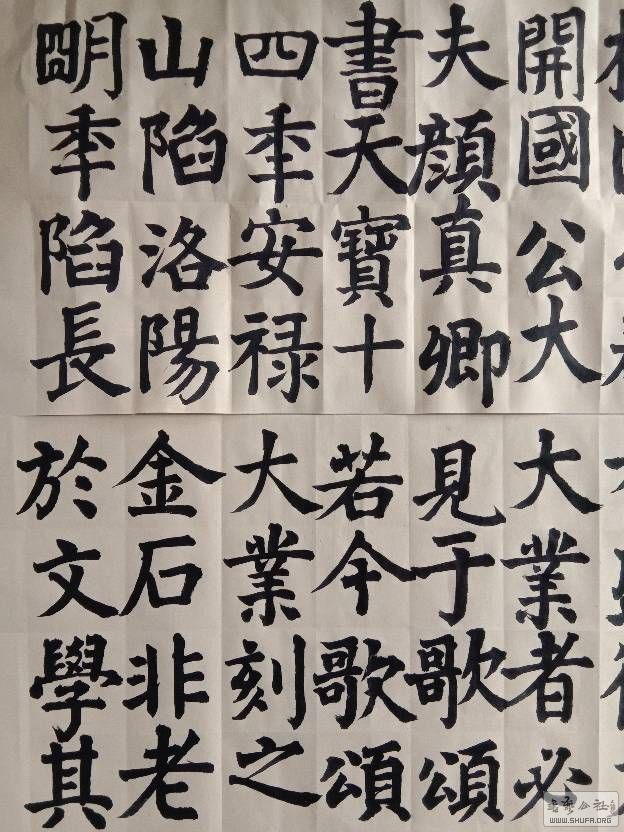 開國公大
夫顔真卿
書天寶十
四秊安禄
山陷洛陽
朙秊陷長
大業者必
見于歌頌
若今歌頌
大業刻之
金石非老
於文學其
WWW.SHUFA.ORG